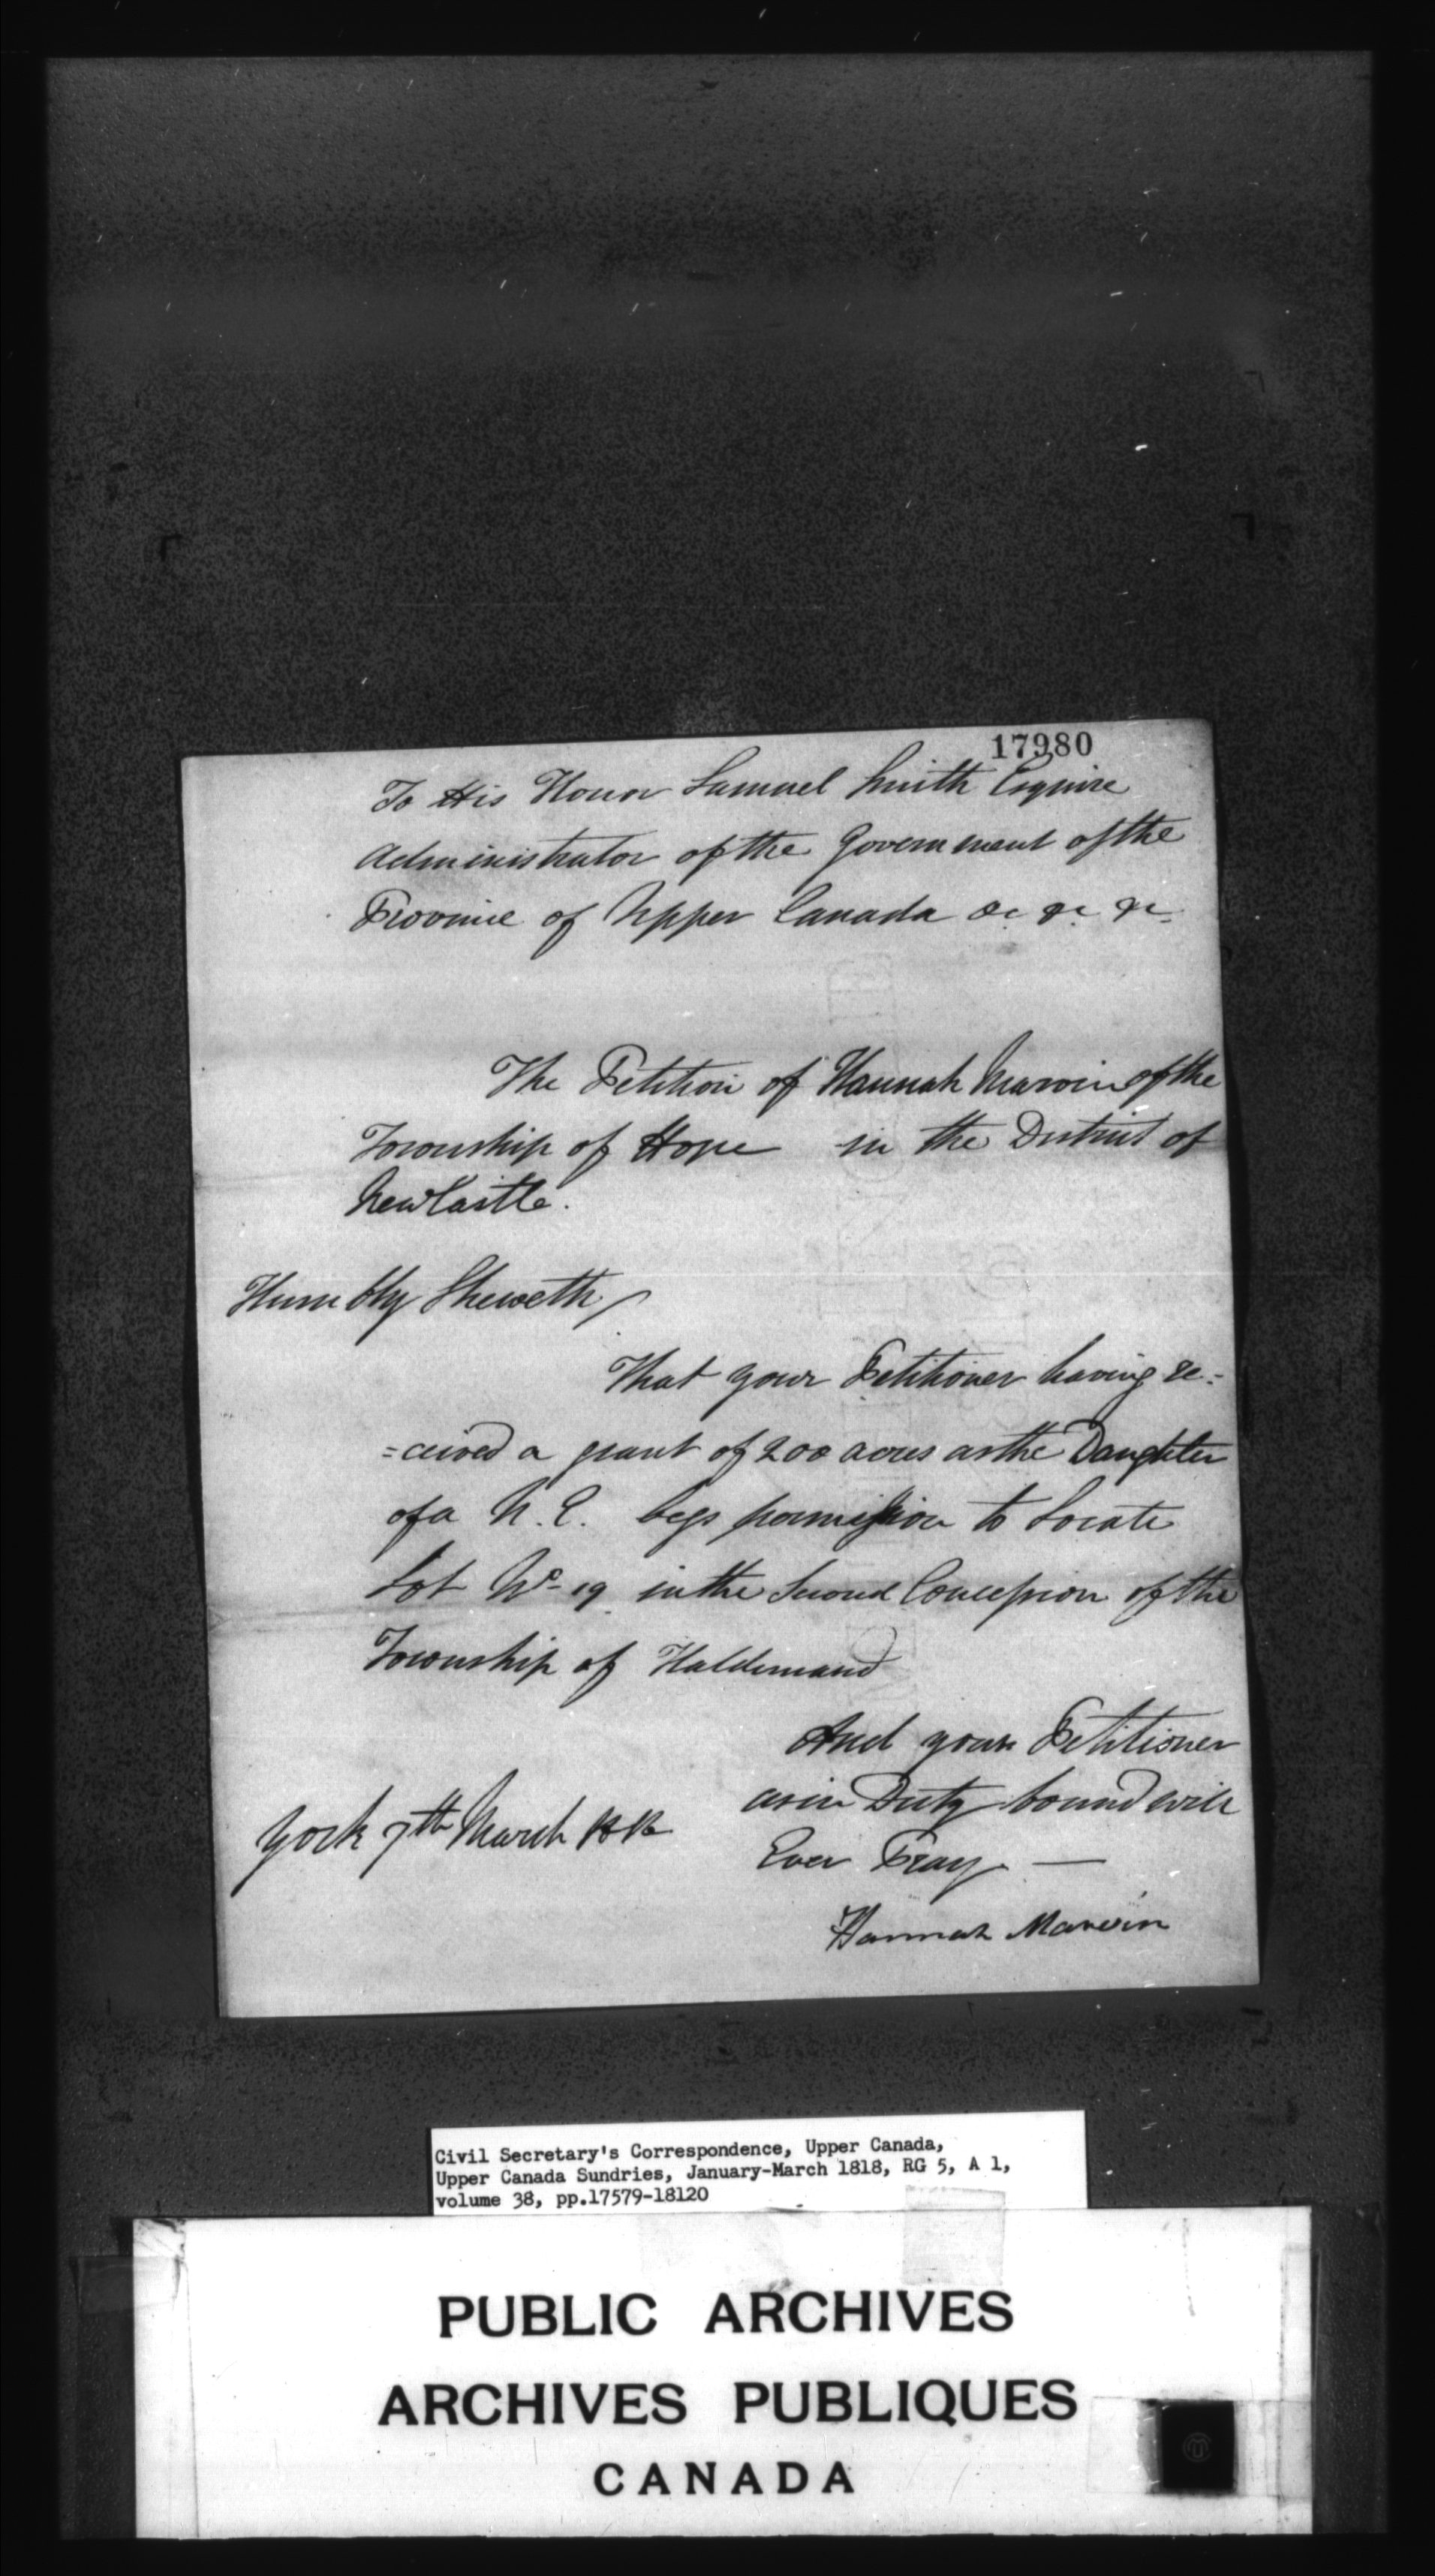 17980
To His Honor Samuel Smith Esquire
Administrator of the Government of the
Province of Upper Canada &c &c &c
The Petition of Hannah Marvin of the
Township of Hope in the District of
NewCastle.
Humbly Sheweth,
That your Petitioner having re=
=ceived a grant of 200 acres as the Daughter
of a U.E. begs permission to Locate
Lot No 19 in the Second Concession of the
Township of Haldimand
And your Petitioner
as in Duty bound will
Ever Pray. —
York 7th March 1818
Hannah Marvin
Civil Secretary's Correspondence, Upper Canada,
Upper Canada Sundries, January-March 1818, RG 5, A 1,
volume 38, pp.17579-18120
PUBLIC ARCHIVES
ARCHIVES PUBLIQUES
CANADA